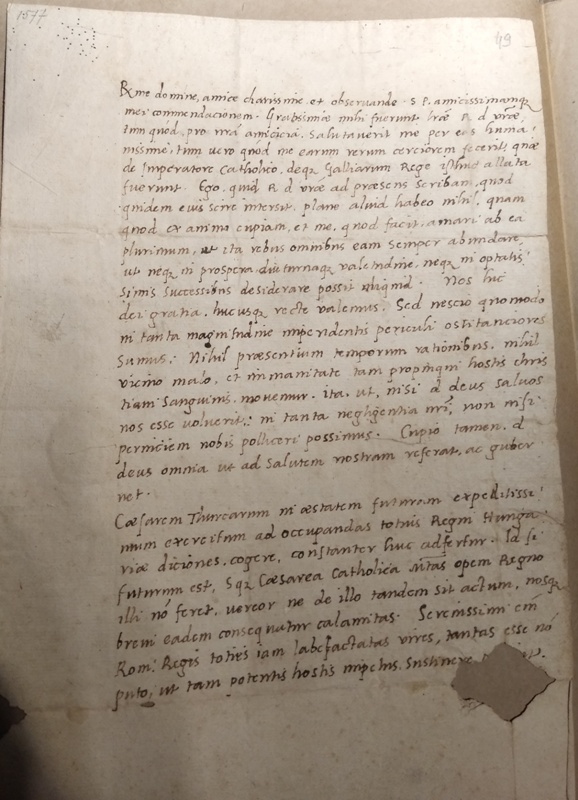 1577
49
Rme domine, amice charissime, et observande. S P. amicissimamq;
mei commendacionem. Gratissimæ mihi fuerunt lræ R d vræ,
tum quod, pro vra amicicia, salutaverit me per eas huma:
nissime, tum vero quod me earum rerum cerciorem fecerit, quæ
de Imperatore Catholico, deq; Galliarum Rege isthuc allata
fuerunt. Ego, quid R d vræ ad præsens scribam, quod
quidem eius scire intersit, plane aliud habeo nihil, quam
quod ex animo cupiam, et me, quod facit, amari ab ea
plurimum, et ita rebus omnibus eam semper abundare,
ut neq; in prospera diuturnaq; valetudine, neq; in optatis:
simis successibus desiderare possit aliquid. Nos huc
dei gratia, hucusq; recte valemus. Sed nescio quomodo
in tanta magnitudine impendentis periculi oscitanciores
sumus. Nihil præsentium temporum rationibus, nihil
vicino malo, et immanitate tam propinqui hostis chris
tiani sanguinis, movemur. ita, ut, nisi d deus salvos
nos esse voluerit, in tanta negligentia nri, non nisi
perniciem nobis polliceri possimus. Cupio tamen, d
deus omnia ut ad salutem nostram referat, ac guber
net.
Cæsarem Thurcarum in æstatem futuram expeditissi:
mum exercitum ad occupandas totius Regni Hunga:
riæ diciones, cogere, constanter huc adfertur. Id si
futurum est, Sq; Cæsarea Catholica mtas opem Regno
illi nõ feret, vereor ne de illo tandem sit actum, nosq;
brevi eadem consequatur calamitas. Serenissimi em̃
Rom: Regis toties iam labefactatas vires, tantas esse nõ
puto, ut tam potentis hostis impetus, sustinere